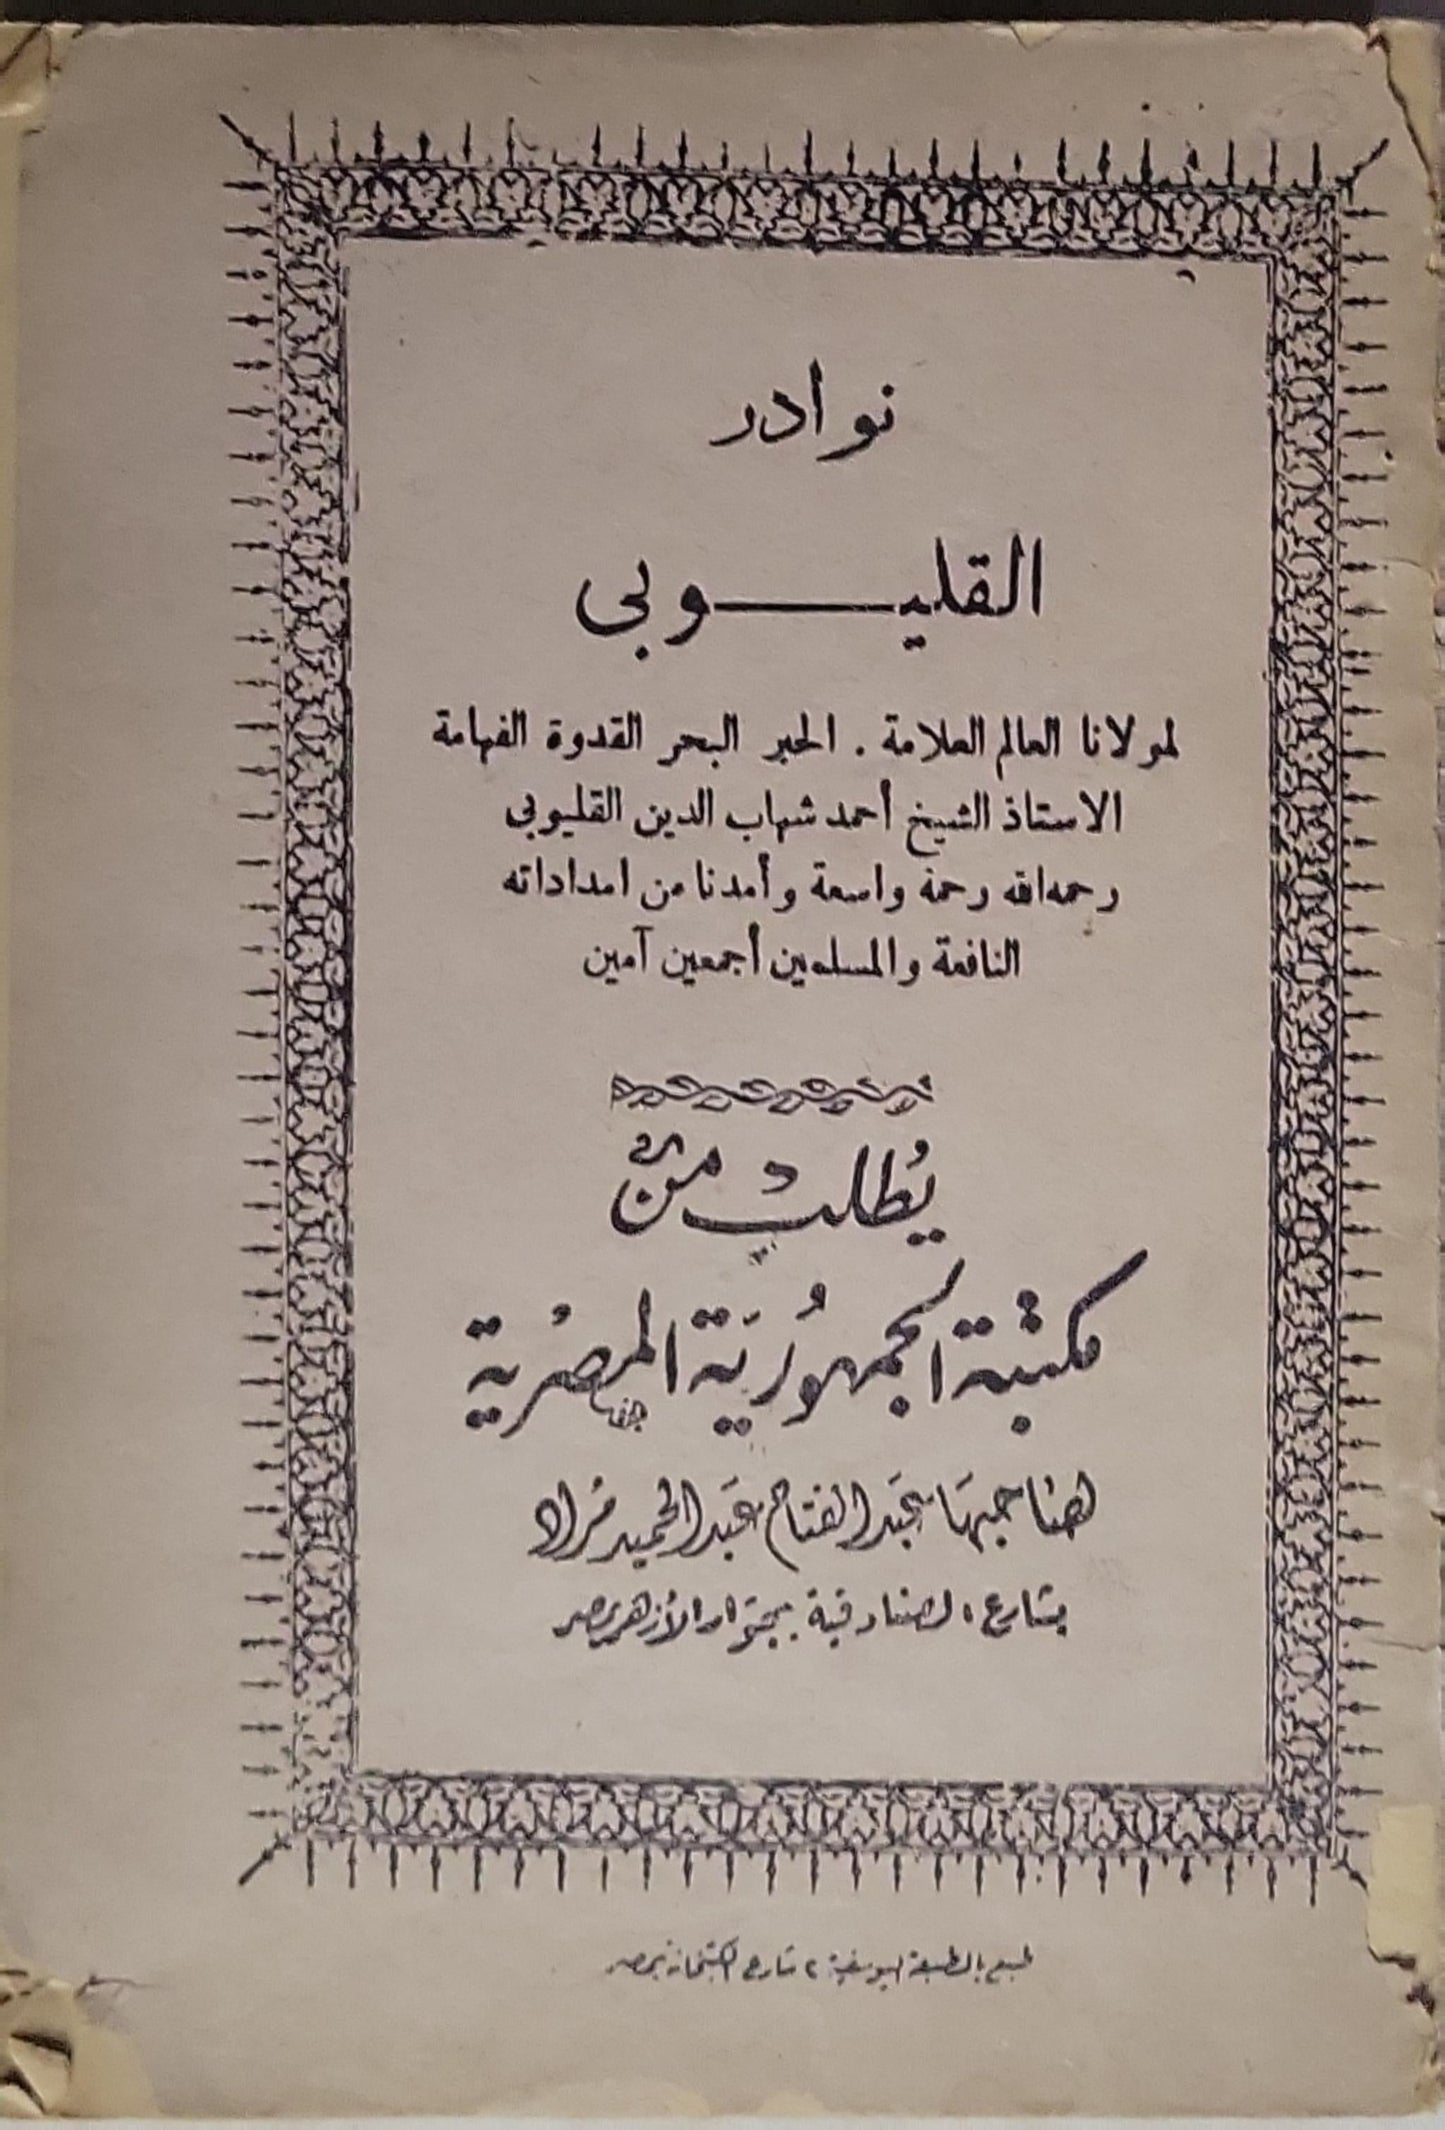 نوادر
القليوبى
لمولانا العالم العلامة . الحبر البحر القدوة الفهامة
الاستاذ الشيخ أحمد شهاب الدين القليوبى
رحمه الله رحمة واسعة وأمدنا من امداداته
النافعة والمسلمين أجمعين آمين
يُطلب من
مكتبة الجمهورية المصرية
لصاحبها عبد الفتاح عبد الحميد مراد
بشارع الصنادقية بجوار الأزهر بمصر
طبع بالمطبعة اليوسفية ٢ شارع الكتبخانة بمصر